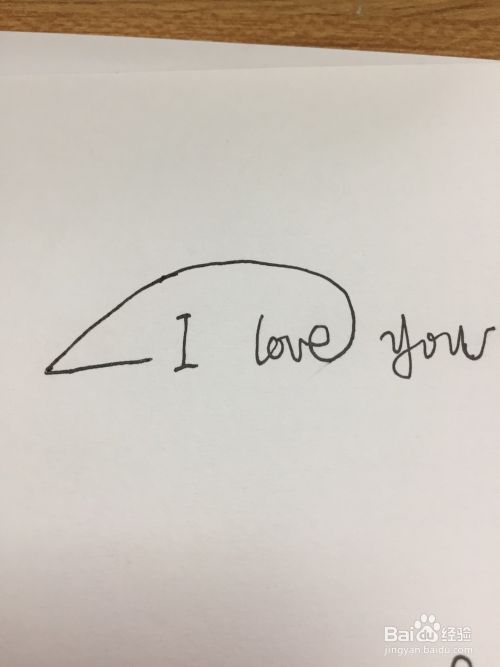 I love you
Baidu 经验
jingyan.baidu.com